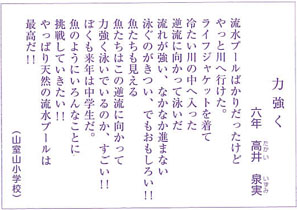 力強く
六年　高井　泉実
たかい　いずみ
流水プールばかりだったけど
やっと川へ行けた。
ライフジャケットを着て
冷たい川の中へ入った
逆流に向かって泳いだ
流れが強い、なかなか進まない
泳ぐのがきつい、でもおもしろい!!
魚たちも見える
魚たちはこの逆流に向かって
力強く泳いでいるのか、すごい!!
ぼくも来年は中学生だ。
魚のようにいろんなことに
挑戦していきたい!!
やっぱり天然の流水プールは
最高だ!!
（山室山小学校）